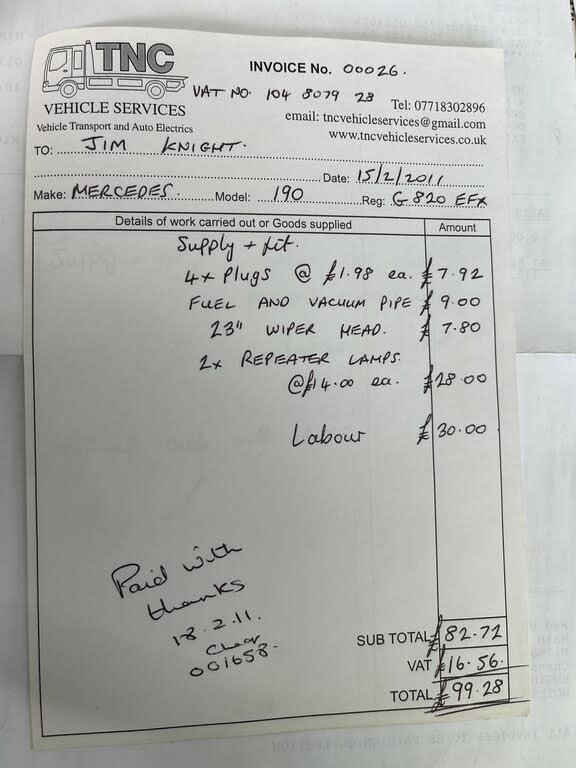 TNC
INVOICE No. 00026.
VAT NO. 104 8079 28
VEHICLE SERVICES
Tel: 07718302896
Vehicle Transport and Auto Electrics
email: tncvehicleservices@gmail.com
www.tncvehicleservices.co.uk
TO: JIM KNIGHT.
Date: 15/2/2011
Make: MERCEDES. Model: 190 Reg: G 820 EFX
Details of work carried out or Goods supplied Amount
Supply + fit.
4x Plugs @ £1.98 ea. £7.92
FUEL AND VACUUM PIPE £9.00
23" WIPER HEAD. £7.80
2x REPEATER LAMPS.
@£14.00 ea. £28.00
Labour £30.00
Paid with
thanks
18.2.11.
001658.
SUB TOTAL £82.72
VAT £16.56.
TOTAL £99.28